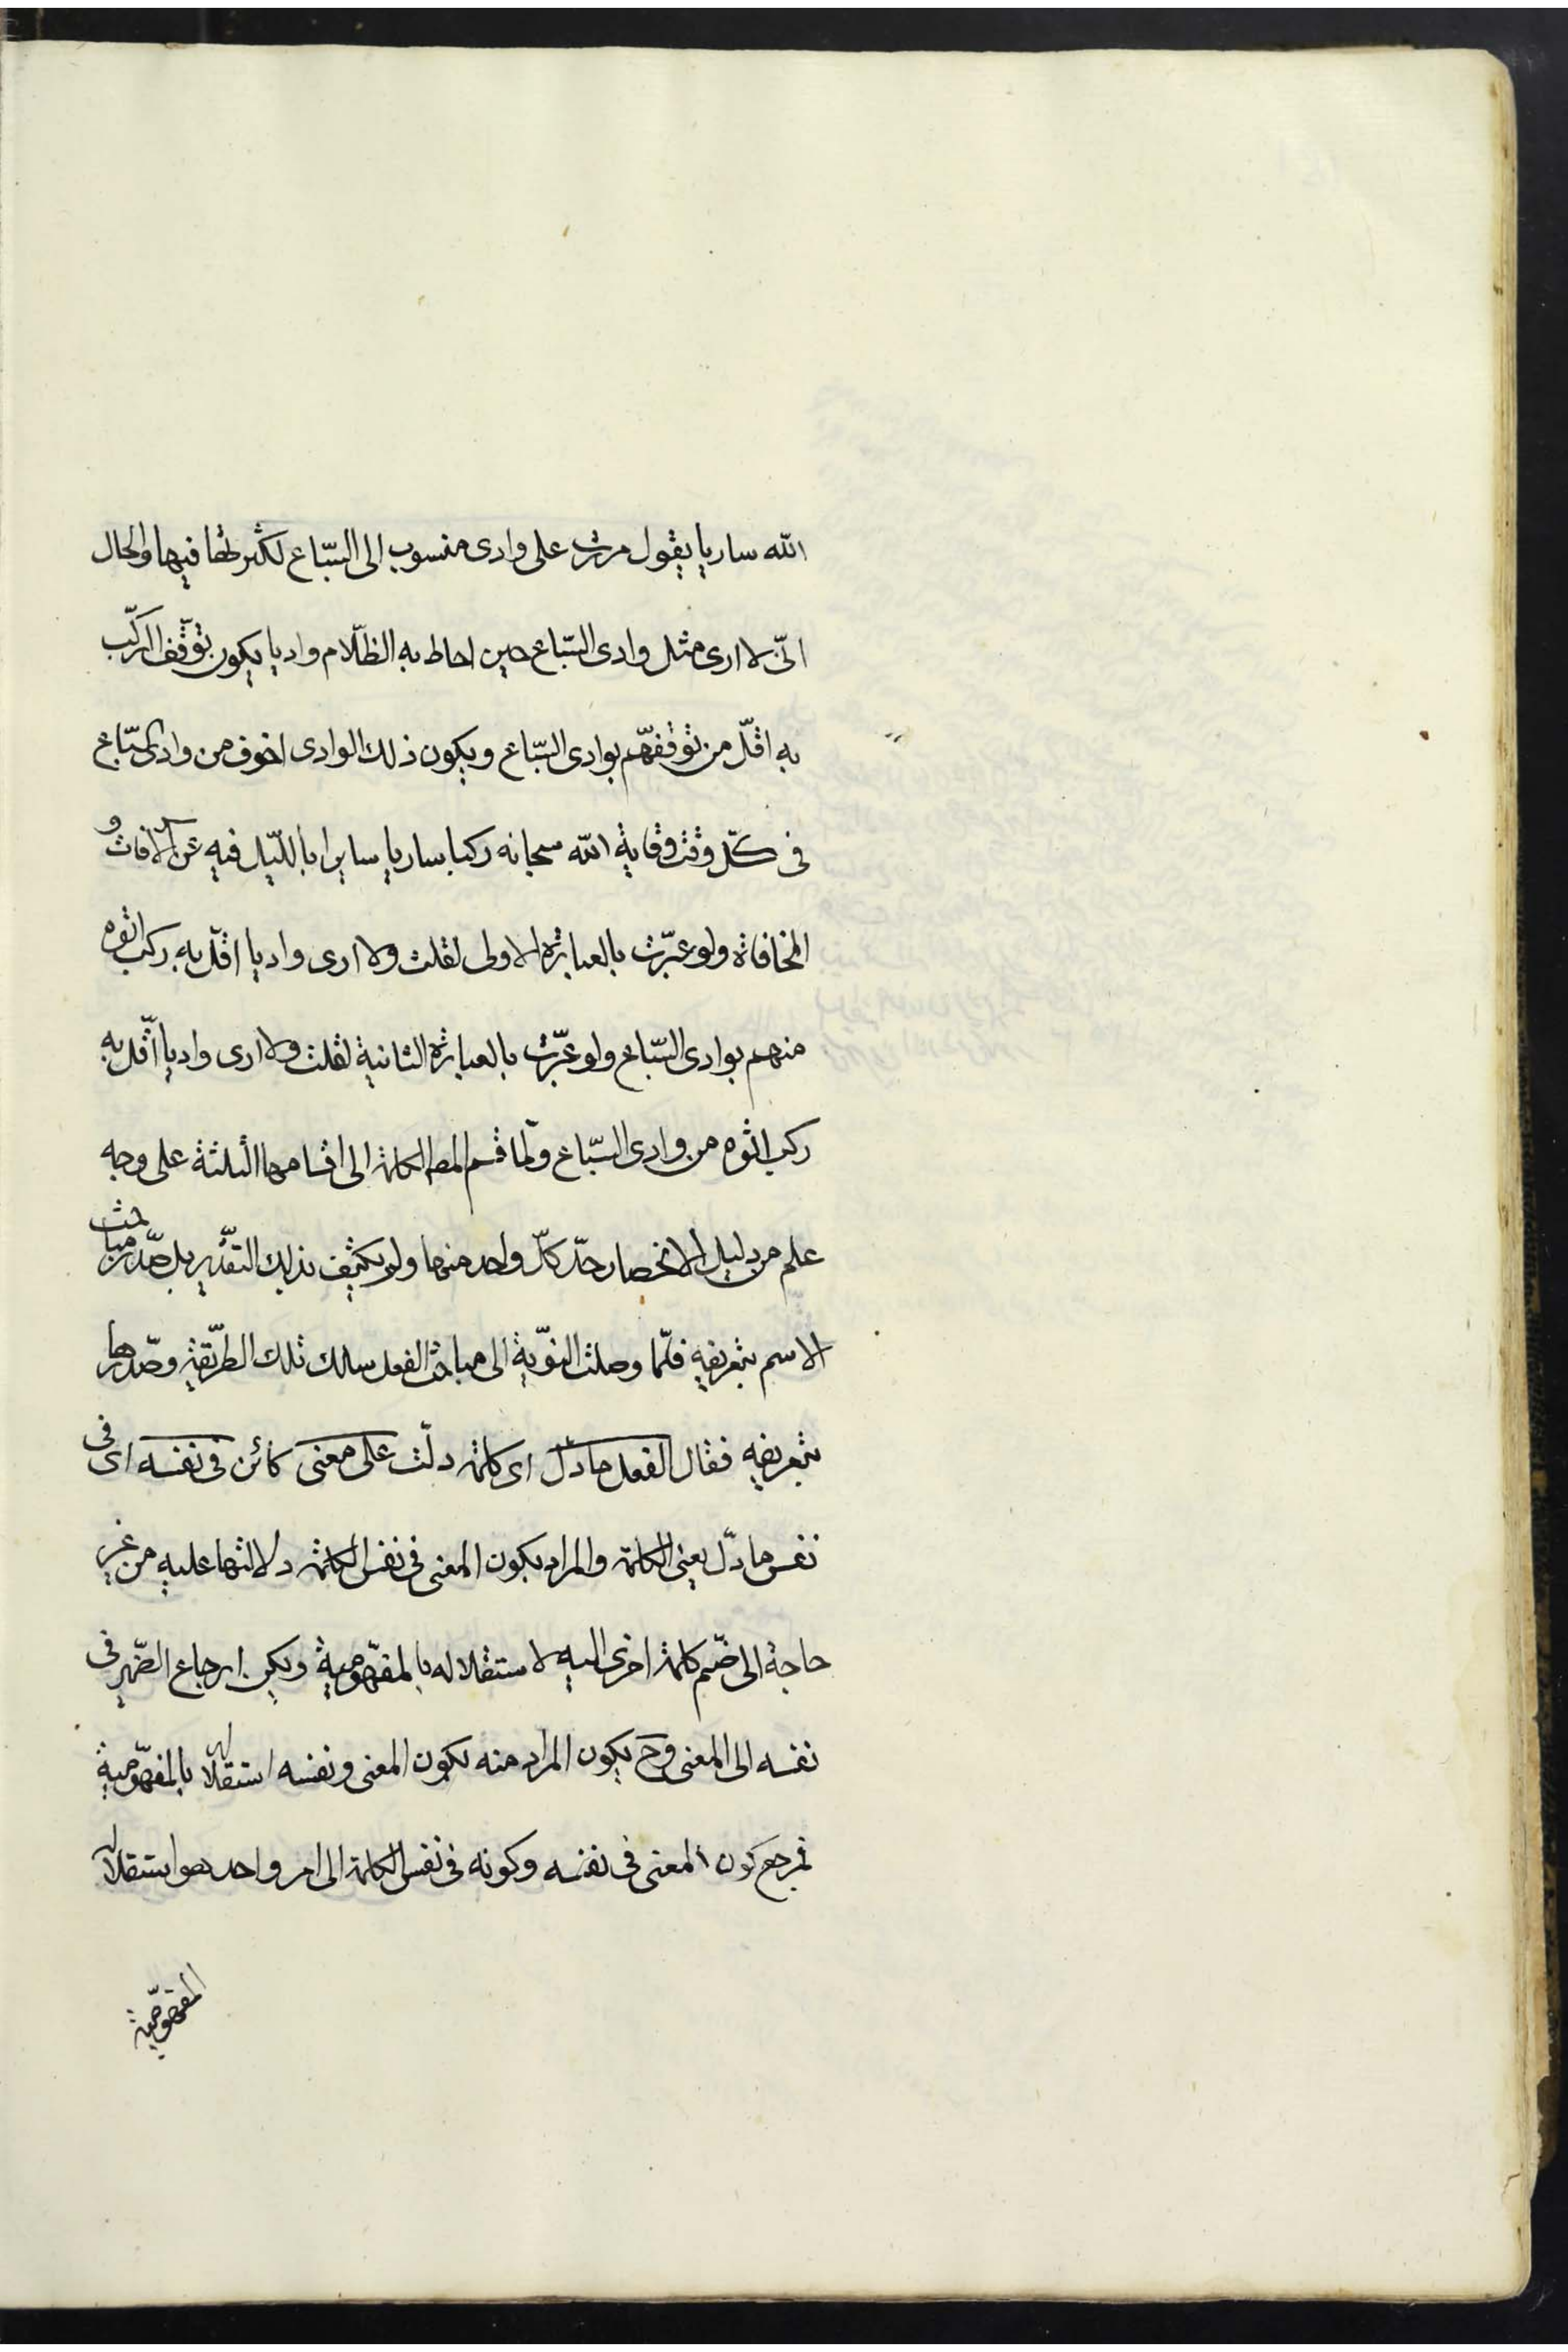 الله ساريا يقول مررت على وادى منسوب الى السّباع لكثرتها فيها والحال
انّى لا ارى مثل وادى السّباع حين احاط به الظّلام واديا يكون توقّف الرّكب
به اقلّ من توقفهّم بوادى السّباع ويكون ذلك الوادى اخوف من وادى السّباع
فى كلّ وقت وقاية الله سبحانه ركبا ساريا سايرا باللّيل فيه عن الآفات و
المخافاة ولو عبّرت بالعبارة الاولى لقلت ولا ارى واديا اقلّ به ركب اتوه
منهم بوادى السّباع ولو عبّرت بالعبارة الثانية لقلت ولا ارى واديا اقّل به
ركب اتوه من وادى السّباع ولّما قسم المصـ الكلمة الى اقسامها الثلثة على وجه
علم من دليل الانحصار حدّ كلّ واحد منها ولم يكتف بذلك التقّدير بل صّدر مباحث
الاسم بتعريفه فلّما وصلت النوّبة الى مباحث الفعل سلك تلك الطرّيقة وصّدرها
بتعريفه فقال الفعل ما دلّ اى كلمة دلّت على معنى كائن فى نفسه اى فى
نفس ما دلّ يعنى الكلمة والمراد بكون المعنى فى نفس الكلمة دلالتها عليه من غير
حاجة الى ضّم كلمة اخرى اليه لاستقلاله بالمفهّومية ويمكن ارجاع الضّمير فى
نفسه الى المعنى وح يكون المراد منه بكون المعنى و نفسه استقلاله بالمفهّومية
فمرجع كون المعنى فى نفسه وكونه فى نفس الكلمة الى امر واحد هو استقلاله
المفهوّمية